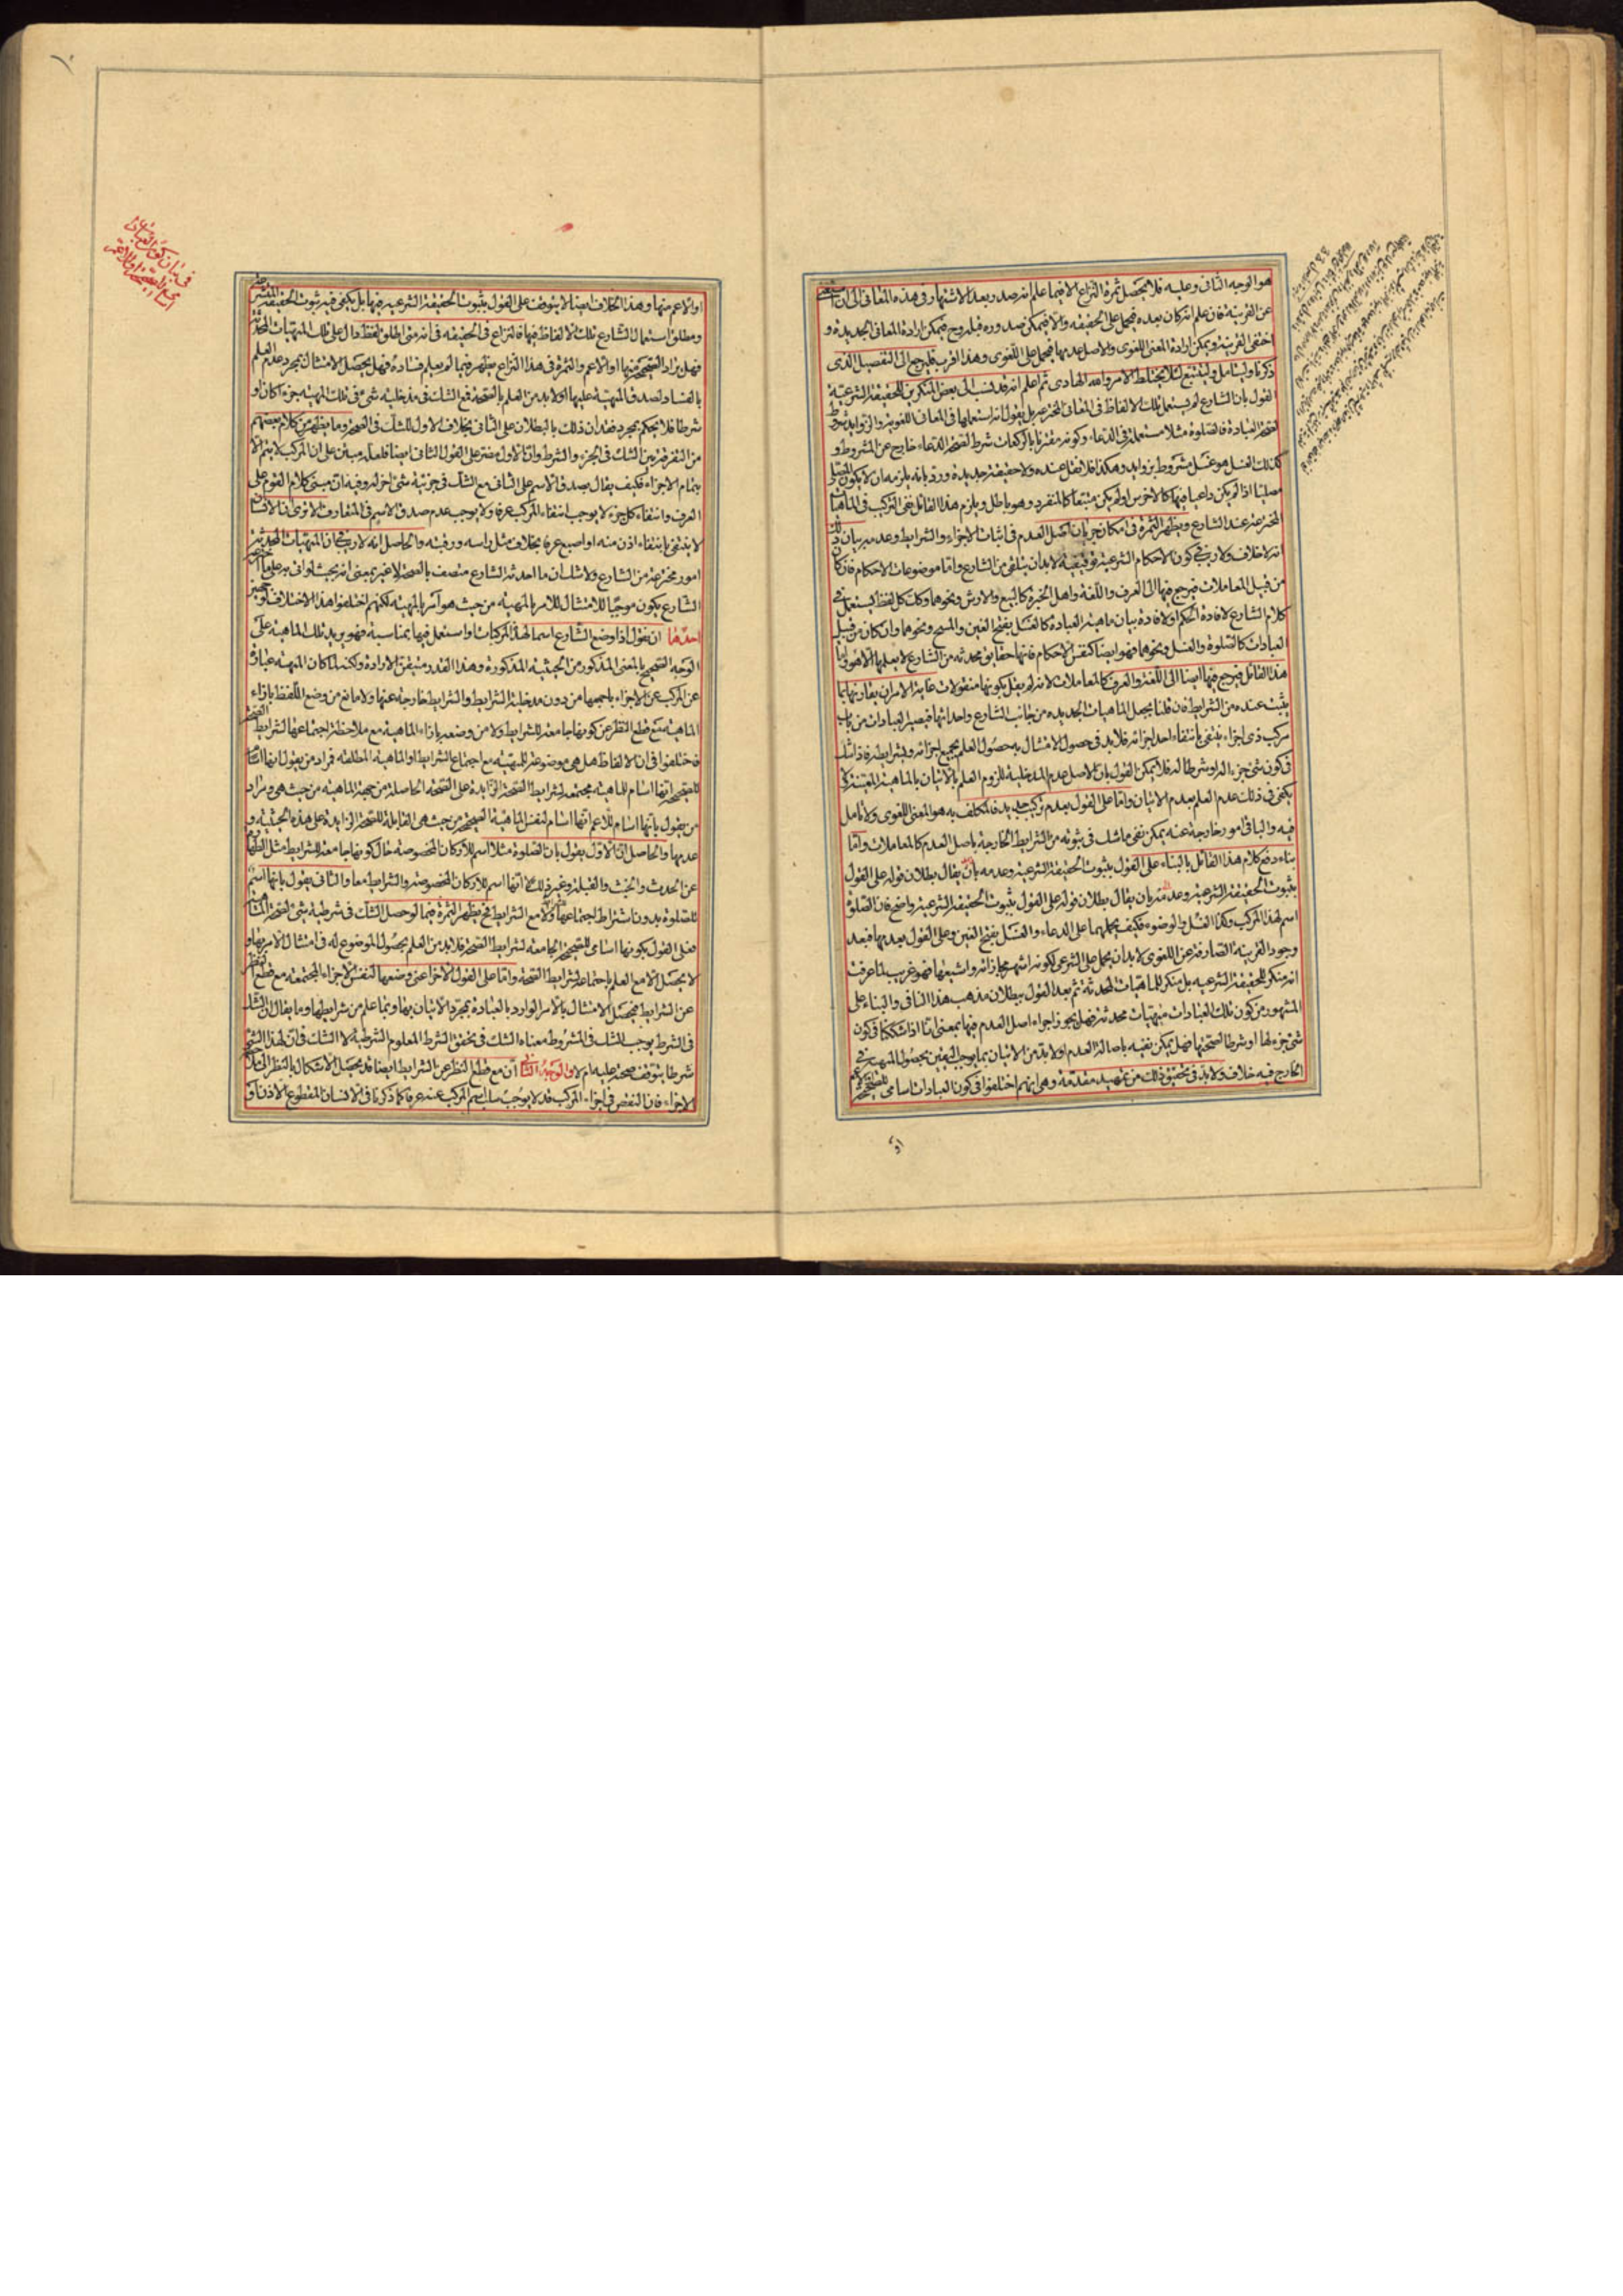 هو الوجه الثانى وعليه فلا يحصل ثمرة النزاع الا فيما علم انه صدر بعد الاشتهار فى هذه المعانى الى ان استغنى
عن القرينة فان علم انه كان بعده فيحمل على الحقيقة والا فيمكن صدوره قبله وح فيمكن ارادة المعانى الجديدة و
اختفى القرينة ويمكن ارادة المعنى اللغوى والاصل عدمها فيحمل على اللغوى وهذا اقرب فليرجع الى التفصيل الذى
ذكرنا وليتأمل وليتتبع لئلا يختلط الامر والله الهادى ثم اعلم انه قد نسب الى بعض المنكرين للحقيقة الشرعية
القول بان الشارع لم يستعمل تلك الالفاظ فى المعانى المخترعة بل يقول انه استعملها فى المعانى اللغوية والزوايد شروط
لصحة العبادة فالصلوة مثلا مستعملة فى الدعاء وكونه مقترنا بالركعات شرط لصحة الدعاء خارج عن المشروط و
كذلك الغسل هو غسل مشروط بزوايد وهكذا فلا نقل عنده ولا حقيقة جديدة ورد بانه يلزمه ان لا يكون المصلى
مصليا اذا لم يكن داعيا فيها كالاخرس او لم يكن متبعا كالمنفرد وهو باطل ويلزم هذا القائل نفى التركيب فى الماهيات
المخترعة عند الشارع ويظهر الثمرة فى امكان جريان اصل العدم فى اثبات الاجزاء والشرايط وعدمه بيان ذلك
انه لا خلاف ولا ريب فى كون الاحكام الشرعية توقيفية لا بد ان يتلقى من الشارع واما موضوعات الاحكام فان كان
من قبيل المعاملات فيرجع فيها الى العرف واللغة واهل الخبرة كالبيع والارش ونحوهما وكك كل لفظ يستعمل فى
كلام الشارع لافادة الحكم او لافادة بيان ماهية العبادة كالغسل بفتح الغين والمسح ونحوهما وان كان من قبيل
العبادات كالصلوة والغسل ونحوهما فهو ايضا كنفس الاحكام فانها حقايق محدثة من الشارع لا يعلمها الا هو واما
هذا القائل فيرجع فيها ايضا الى اللغة والعرف كالمعاملات لانه لم يقل بكونها منقولات غاية الامر ان يقارنها بما
يثبت عنده من الشرايط فان قلنا بجعل الماهيات الجديدة من جانب الشارع واحداثها فيصير العبادات من باب
مركب ذى اجزاء ينتفى بانتفاء احد اجزائه فلا بد فى حصول الامتثال به حصول العلم بجميع اجزائه وشرايطه فاذا شك
فى كون شئ جزءا له او شرطا له فلا يمكن القول بان الاصل عدم المدخلية للزوم العلم بالاتيان بالماهية المعينة ولا
يكفى فى ذلك عدم العلم بعدم الاتيان واما على القول بعدم تركيب جديد فالمكلف به هو المعنى اللغوى ولا تأمل
فيه والباقى امور خارجة عنه يمكن نفى ما شك فى ثبوته من الشرايط الخارجة باصل العدم كالمعاملات واما
بناء دفع كلام هذا القائل بالبناء على القول بثبوت الحقيقة الشرعية وعدمه بان يقال بطلان قوله على القول
بثبوت الحقيقة الشرعية وعدمه بان يقال بطلان قوله على القول بثبوت الحقيقة الشرعية واضح فان الصلوة
اسم لهذا المركب وكذا الغسل والوضوء فكيف يحملهما على الدعاء والغسل بفتح الغين وعلى القول بعدمها فبعد
وجود القرينة الصارفة عن اللغوى لا بد ان يحمل على الشرعى لكونه اشهر مجازاته واشيعها فهو غريب لما عرفت
انه منكر للحقيقة الشرعية بل منكر للماهيات المحدثة ثم بعد القول ببطلان مذهب هذا النافى والبناء على
المشهور من كون تلك العبادات مهيات محدثة فهل يجوز اجراء اصل العدم فيها بمعنى انا اذا شككنا فى كون
شئ جزء لها او شرطا لصحتها فهل يمكن نفيه باصالة العدم او لا بد من الاتيان بما يوجب اليقين بحصول المهية فى
الخارج فيه خلاف ولا بد فى تحقيق ذلك من تمهيد مقدمة وهى انهم اختلفوا فى كون العبادات اسامى للصحيحة
او
فى بيان كون العبادات
اسامى للصحيحة او الاعم
او الاعم منها وهذا الخلاف ايضا لا يتوقف على القول بثبوت الحقيقة الشرعية فيها بل يكفى فيه ثبوت الحقيقة المتشرعة
ومطلق استعمال الشارع تلك الالفاظ فيها فالنزاع فى الحقيقة فى انه متى اطلق لفظ دال على تلك المهيات المحدثة
فهل يراد الصحيحة منها او الاعم والثمرة فى هذا النزاع يظهر فيما لم يعلم فساده فهل يحصل الامتثال بمجرد عدم العلم
بالفساد لصدق المهية عليها او لا بد من العلم بالصحة فمع الشك فى مدخلية شئ فى تلك المهية جزءا كان او
شرطا فلا يحكم بمجرد فقدان ذلك بالبطلان على الثانى بخلاف الاول للشك فى الصحة وما يظهر من كلام بعضهم
من التفرقة بين الشك فى الجزء والشرط وان الاول مضر على القول الثانى ايضا فلعله مبنى على ان المركب لا يتم الا
بتمام الاجزاء فكيف يقال بصدق الاسم على الثانى مع الشك فى جزئية شئ اخر له وفيه ان مبنى كلام القوم على
العرف وانتفاء كل جزء لا يوجب انتفاء المركب عرفا ولا يوجب عدم صدق الاسم فى المتعارف الا ترى ان الانسان
لا ينتفى بانتفاء اذن منه او اصبع عرفا بخلاف مثل راسه ورقبته والحاصل انه لا ريب فى ان المهيات المحدثة
امور مخترعة من الشارع ولا شك ان ما احدثه الشارع متصف بالصحة لا غير بمعنى انه بحيث لو اتى به على ما اخترعه
الشارع يكون موجبا للامتثال للامر بالمهية من حيث هو امر بالمهية لكنهم اختلفوا هذا الاختلاف لوجهين
احدهما ان نقول اذا وضع الشارع اسما لهذه المركبات او استعمل فيها بمناسبة فهو يريد تلك الماهية على
الوجه الصحيح بالمعنى المذكور من الحيثية المذكورة وهذا القدر متيقن الارادة ولكن لما كان المهية عبارة
عن المركب عن الاجزاء باجمعها من دون مدخلية الشرايط والشرايط خارجة عنها ولا مانع من وضع اللفظ بازاء
الماهية مع قطع النظر عن كونها جامعة للشرايط ولا من وضعه بازاء الماهية مع ملاحظة اجتماعها لشرايط الصحة
فاختلفوا فى ان الالفاظ هل هى موضوعة للمهية مع اجتماع الشرايط او الماهية المطلقة فمراد من يقول بانها اسام
للصحيحة انها اسام للماهية مجتمعة لشرايط الصحة الزايدة على الصحة الحاصلة من جهة الماهية من حيث هى ومراد
من يقول بانها اسام للاعم انها اسام لنفس الماهية الصحيحة من حيث هى القابلة للصحة الزايدة على هذه الحيثية و
عدمها والحاصل ان الاول يقول بان الصلوة مثلا اسم للاركان المخصوصة حال كونها جامعة للشرايط مثل الطهارة
عن الحدث والخبث والقبلة وغير ذلك لا انها اسم للاركان المخصوصة والشرايط معا والثانى يقول بانها اسم
للصلوة بدون اشتراط اجتماعها ولا مع الشرايط فح يظهر الثمرة فيما لو حصل الشك فى شرطية شئ لصحة الماهية
فعلى القول بكونها اسامى للصحيحة الجامعة لشرايط الصحة فلا بد من العلم بحصول الموضوع له فى امتثال الامر بها و
لا يحصل الا مع العلم باجتماعه لشرايط الصحة واما على القول الاخر اعنى وضعها لنفس الاجزاء المجتمعة مع قطع النظر
عن الشرايط فيحصل الامتثال بالامر الوارد بالعبادة بمجرد الاتيان بها وبما علم من شرايطها وما يقال ان الشك
فى الشرط يوجب الشك فى المشروط معناه الشك فى تحقق الشرط المعلوم الشرطية لا الشك فى ان لهذا الشئ
شرطا يتوقف صحته عليه ام لا والوجه الثانى ان مع قطع النظر عن الشرايط ايضا قد يحصل الاشكال بالنظر الى
الاجزاء فان النقص فى اجزاء المركب قد لا يوجب سلب اسم المركب عنه عرفا كما ذكرنا فى الانسان المقطوع الاذن او